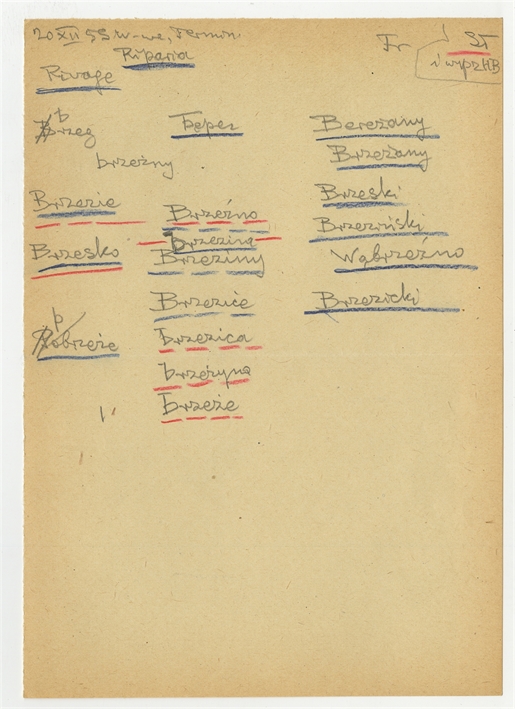 20 XII 59 w-we, Termin.
Riparia
Fr
ST
i wypz HB
Rivage
b
Brzeg
brzeżny
Brzezie
Brzesko
p
Pobrzeże
Берег
Brzeźno
brzezina
Brzeziny
Brzezice
brzezica
brzeżyna
brzeże
Bereżany
Brzeżany
Brzeski
Brzeziński
Wąbrzeźno
Brzezicki